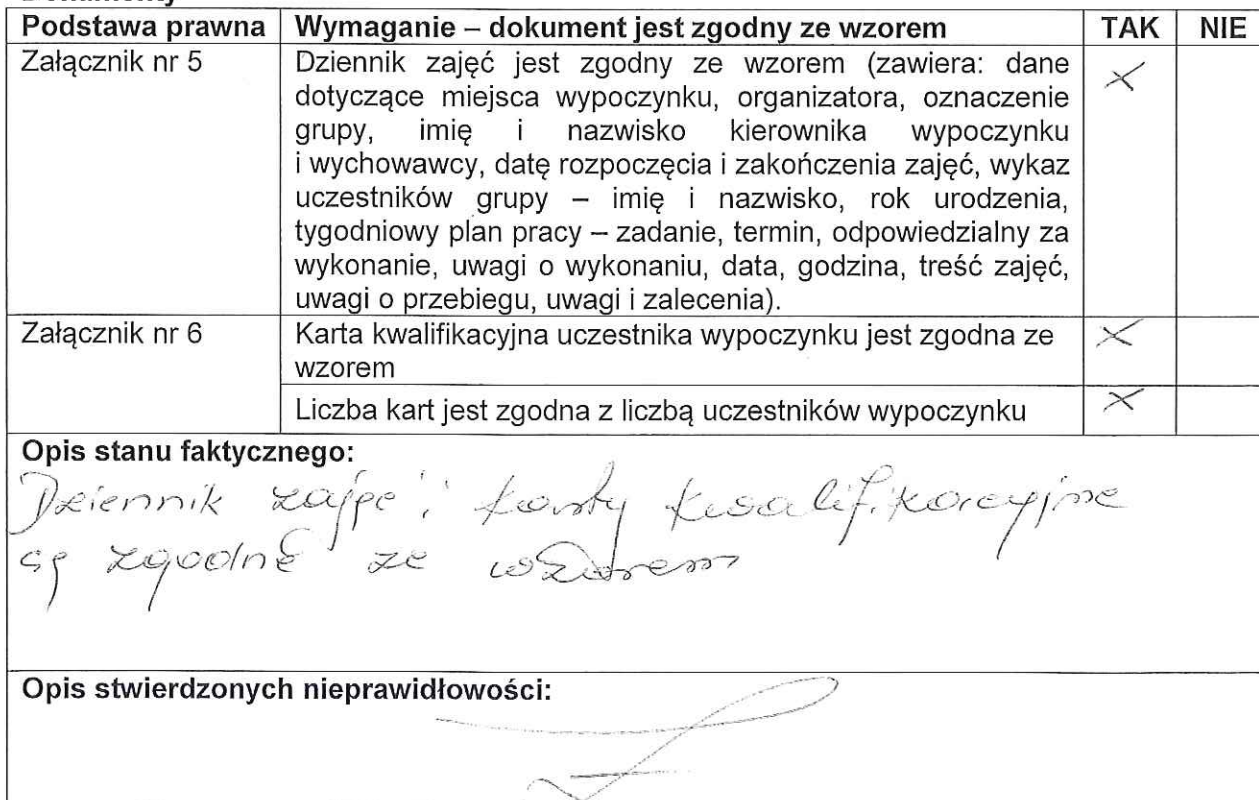 Podstawa prawna Wymaganie – dokument jest zgodny ze wzorem TAK NIE
Załącznik nr 5 Dziennik zajęć jest zgodny ze wzorem (zawiera: dane
dotyczące miejsca wypoczynku, organizatora, oznaczenie
grupy, imię i nazwisko kierownika wypoczynku
i wychowawcy, datę rozpoczęcia i zakończenia zajęć, wykaz
uczestników grupy – imię i nazwisko, rok urodzenia,
tygodniowy plan pracy – zadanie, termin, odpowiedzialny za
wykonanie, uwagi o wykonaniu, data, godzina, treść zajęć,
uwagi o przebiegu, uwagi i zalecenia).
Załącznik nr 6 Karta kwalifikacyjna uczestnika wypoczynku jest zgodna ze
wzorem
Liczba kart jest zgodna z liczbą uczestników wypoczynku
Opis stanu faktycznego:
Dziennik zajęć i karty kwalifikacyjne
są zgodne ze wzorem
Opis stwierdzonych nieprawidłowości: